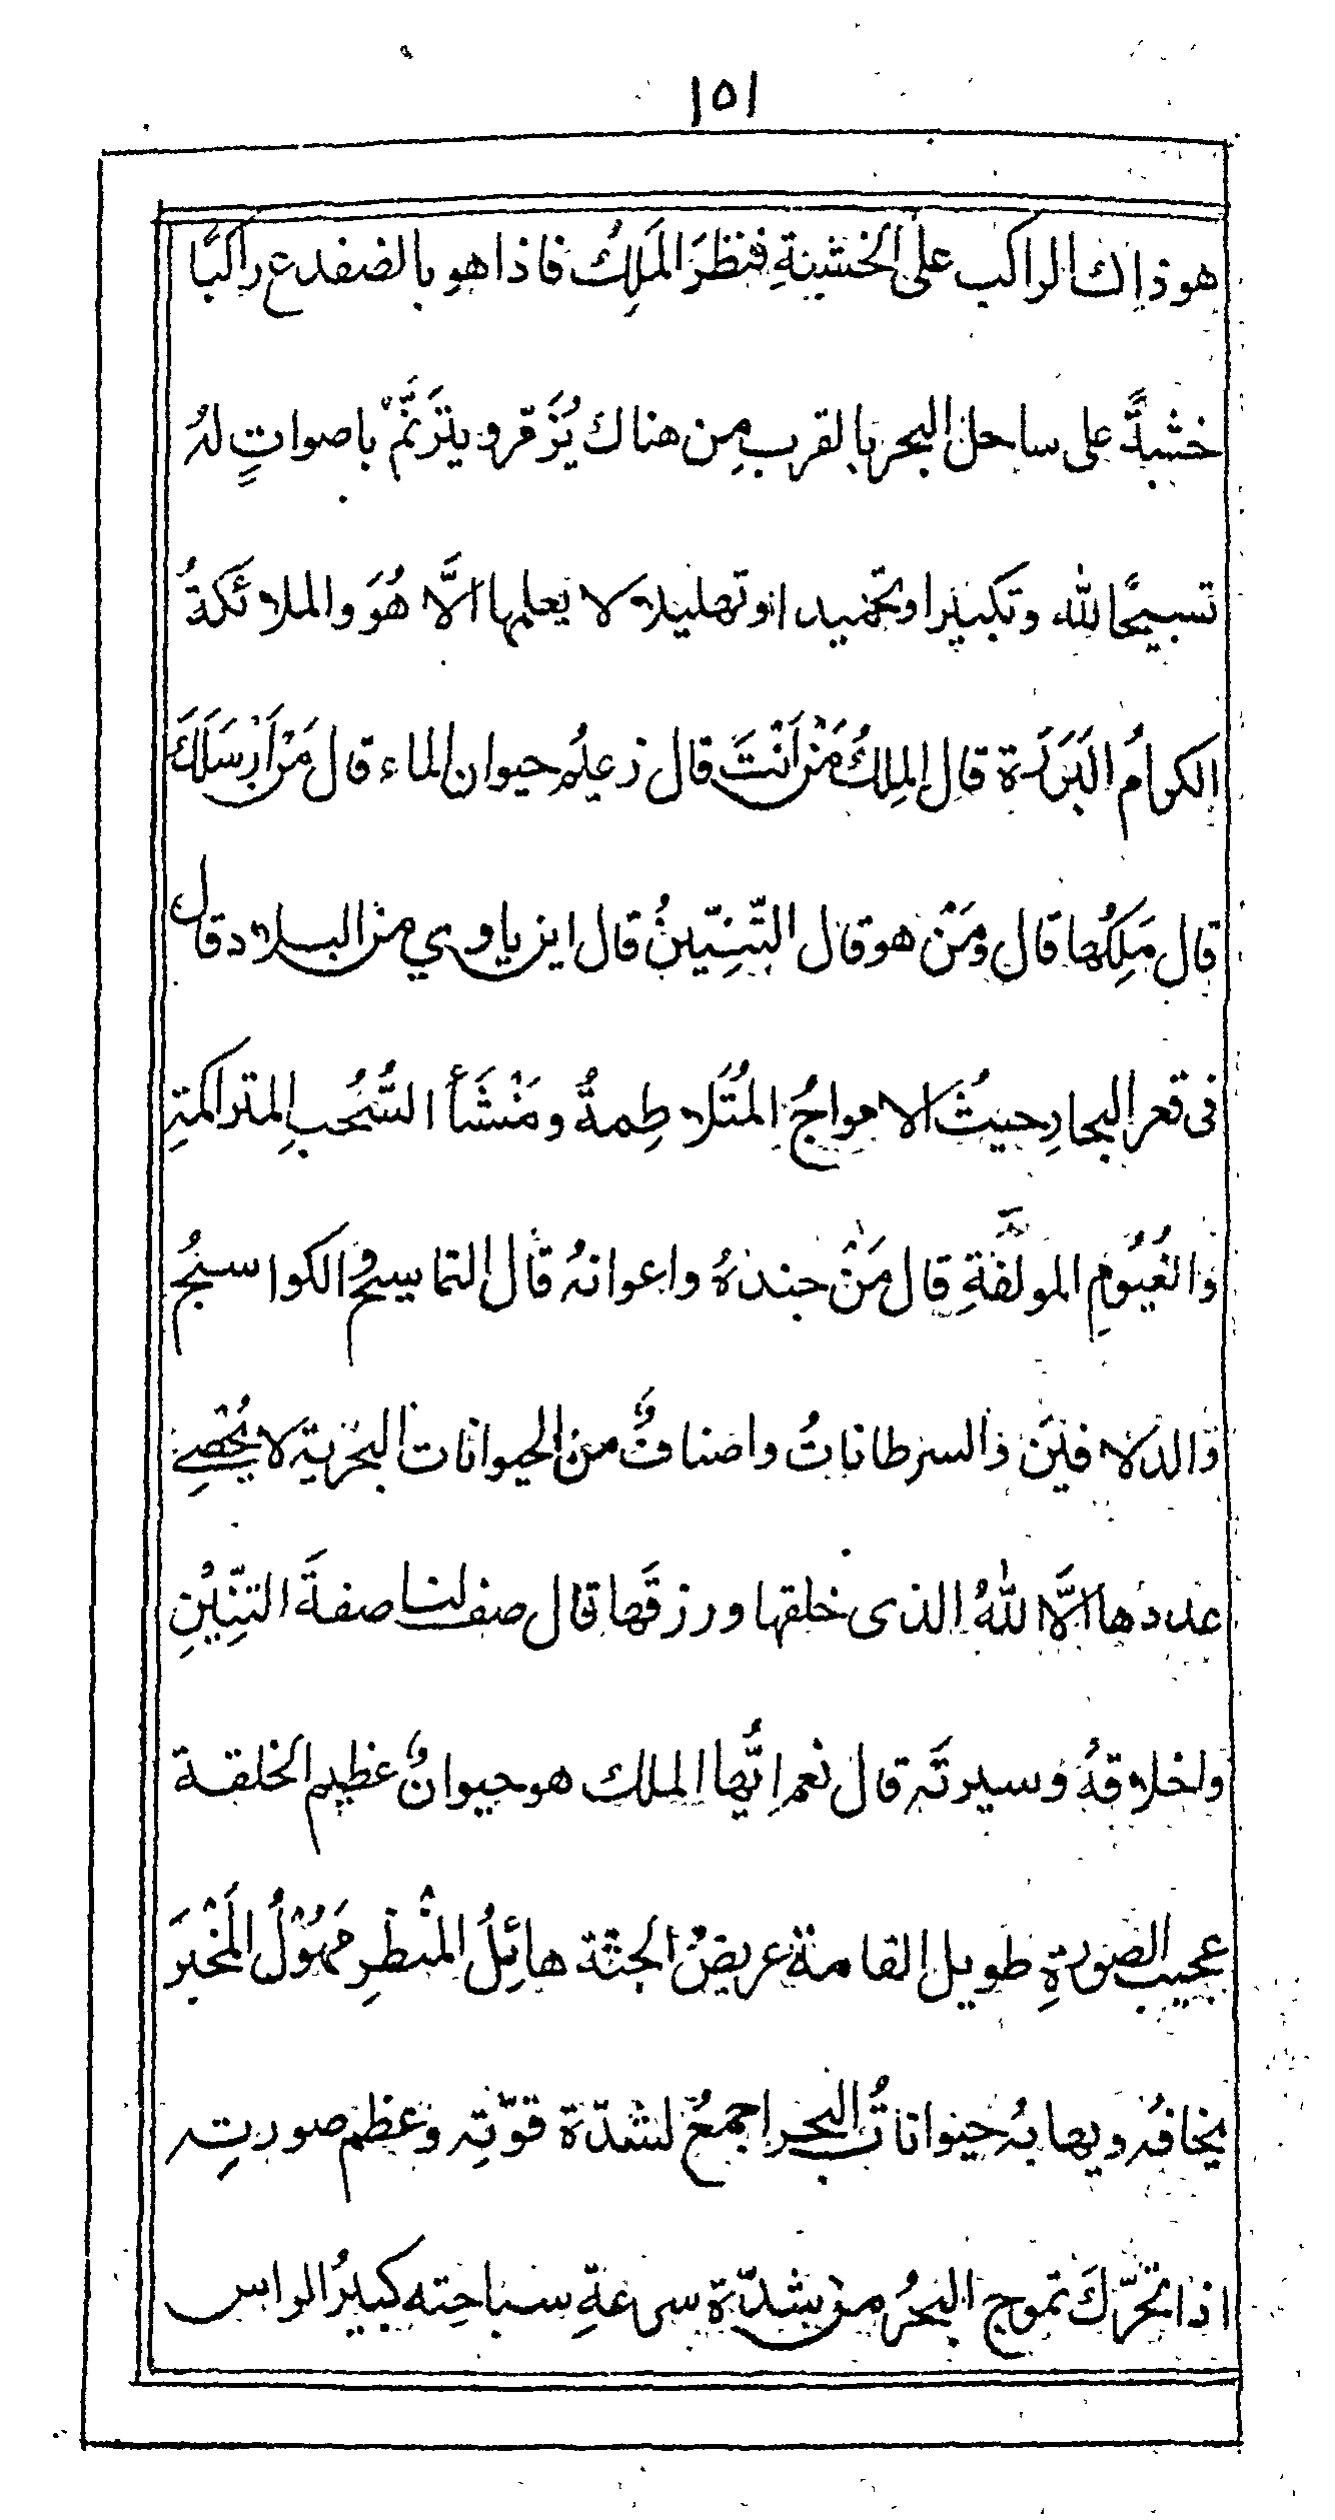 ١٥١
هو ذاك الراكب على الخشبةِ فنظرَ المَلِكُ فاذا هو بالضفدع راكبًا
خشبةً على ساحل البحر بالقرب مِن هناك يُزَمّر و يترَنَّمْ باصواتٍ لهُ
تسبيحًا لله وتكبيرا وتحميدا او تهليلا لا يعلمها الَّا هُوَ والملائكةُ
الكرامُ البَرَرَة قال الملِكُ مَنْ اَنْتَ قال زعيمُ حيوان الماء قال مَنْ اَرْسَلَكَ
قال مَلِكُها قال ومَنْ هو قال التّنِّينُ قال اين ياوي من البلاد قال
فى قعر البحارِ حيثُ الامواجُ المُتَلاطِمةُ ومَنْشَأ السُّحُبِ المتراكمةِ
والغُيُومِ المولَّفةِ قال مَنْ جندهُ واعوانهُ قال التماسيحُ والكواسجُ
والدلافين والسرطاناتُ واصنافٌ من الحيوانات البحريةِ لا يُحْصِے
عددها الَّا اللهُ الذى خلقها ورزقَها قال صف لنا صفةَ التنِّيْنِ
واخلاقهُ وسيرتَہ قال نعم ايُّها الملك هو حيوانٌ عظيم الخلقة
عجيب الصورةِ طويل القامة عريضُ الجثة هائِلُ المنْظرِ مَهُوْلُ المَخْبَرِ
يخافُہ ويهابہُ حيواناتُ البحر اجمعُ لشدّة قوّتِہ وعظم صورتِہ
اذا تحرَّكَ تموج البحرُ من شدّة سرعةِ سباحتِه كبيرُ الراس